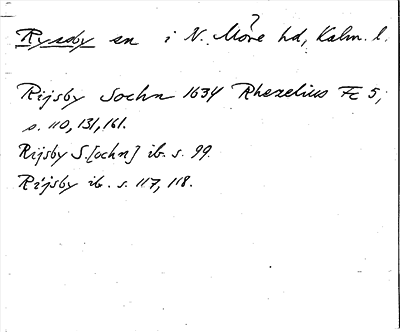 ?
Ryssby sn i N. Möre hd, Kalm. l.
Rijsby Sochn 1634 Rhezelius Fc 5,
s. 110, 131, 161.
Rijsby S.[ochn] ib. s. 99.
Rijsby ib. s. 117, 118.